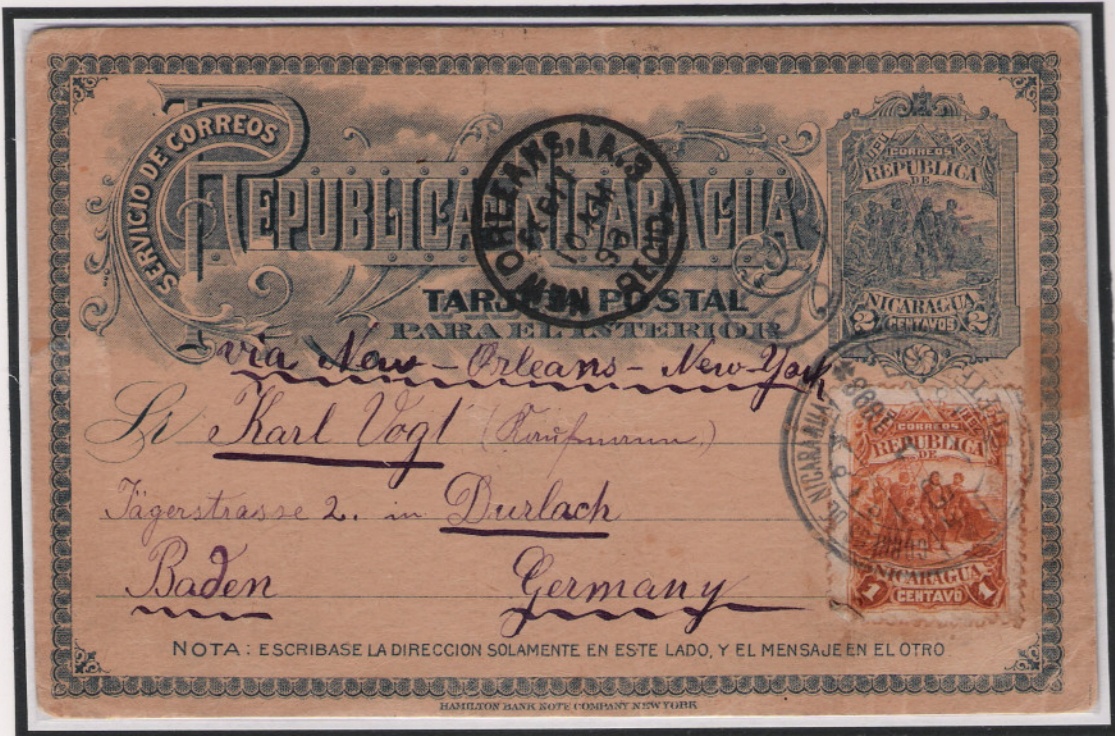 SERVICIO DE CORREOS
REPUBLICA NICARAGUA
TARJETA POSTAL
PARA EL INTERIOR
CORREOS
REPUBLICA
DE
NICARAGUA
2 CENTAVOS 2
NEW ORLEANS, LA. 3
10 AM
93
REC'D.
via New-Orleans - New-York
Sr Karl Vogt (Kaufmann)
Jägerstrasse 2. in Durlach
Baden Germany
DE NICARAGUA
CORREOS
REPUBLICA
DE
NICARAGUA
1 CENTAVO 1
NOTA: ESCRIBASE LA DIRECCION SOLAMENTE EN ESTE LADO, Y EL MENSAJE EN EL OTRO
HAMILTON BANK NOTE COMPANY NEW YORK